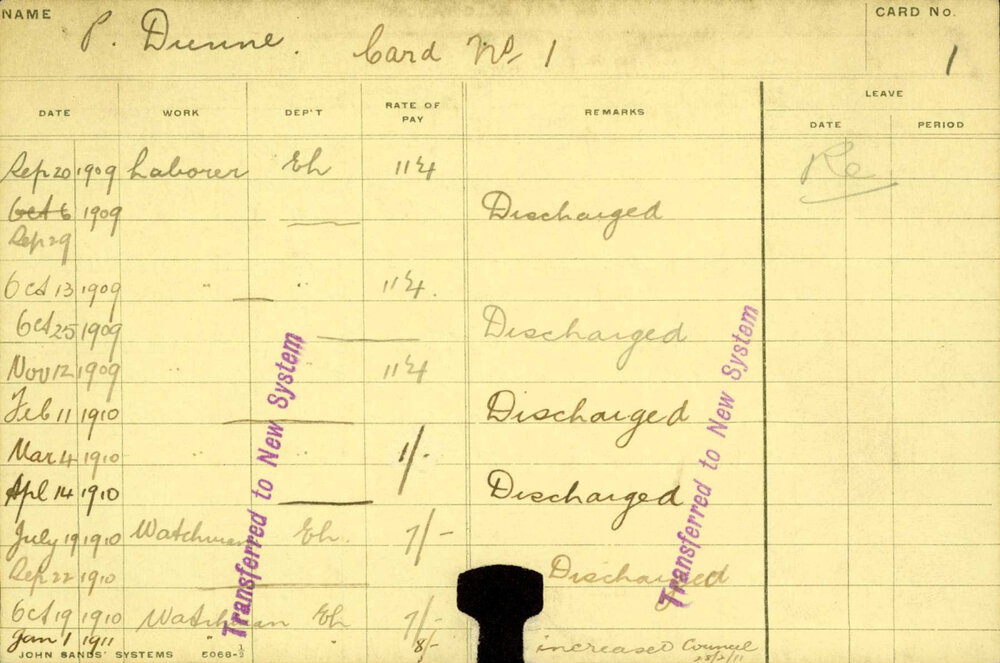 NAME P. Dunne. Card No 1 CARD No. 1
DATE WORK DEP'T RATE OF PAY REMARKS LEAVE
DATE PERIOD
Sep 20 1909 Laborer Eh 11¼ Re
Oct 6 1909 Discharged
Sep 29
Oct 13 1909 " " 11¼.
Oct 25 1909 Discharged
Nov 12 1909 11¼
Feb 11 1910 Discharged
Mar 4 1910 1/-
Apl 14 1910 Discharged
July 19 1910 Watchman Eh. 7/-
Sep 22 1910 Discharged
Oct 19 1910 Watchman Eh 7/-
Jan 1 1911 " " 8/- increased Council
28/2/11
JOHN SANDS' SYSTEMS 5068-½
Transferred to New System
Transferred to New System